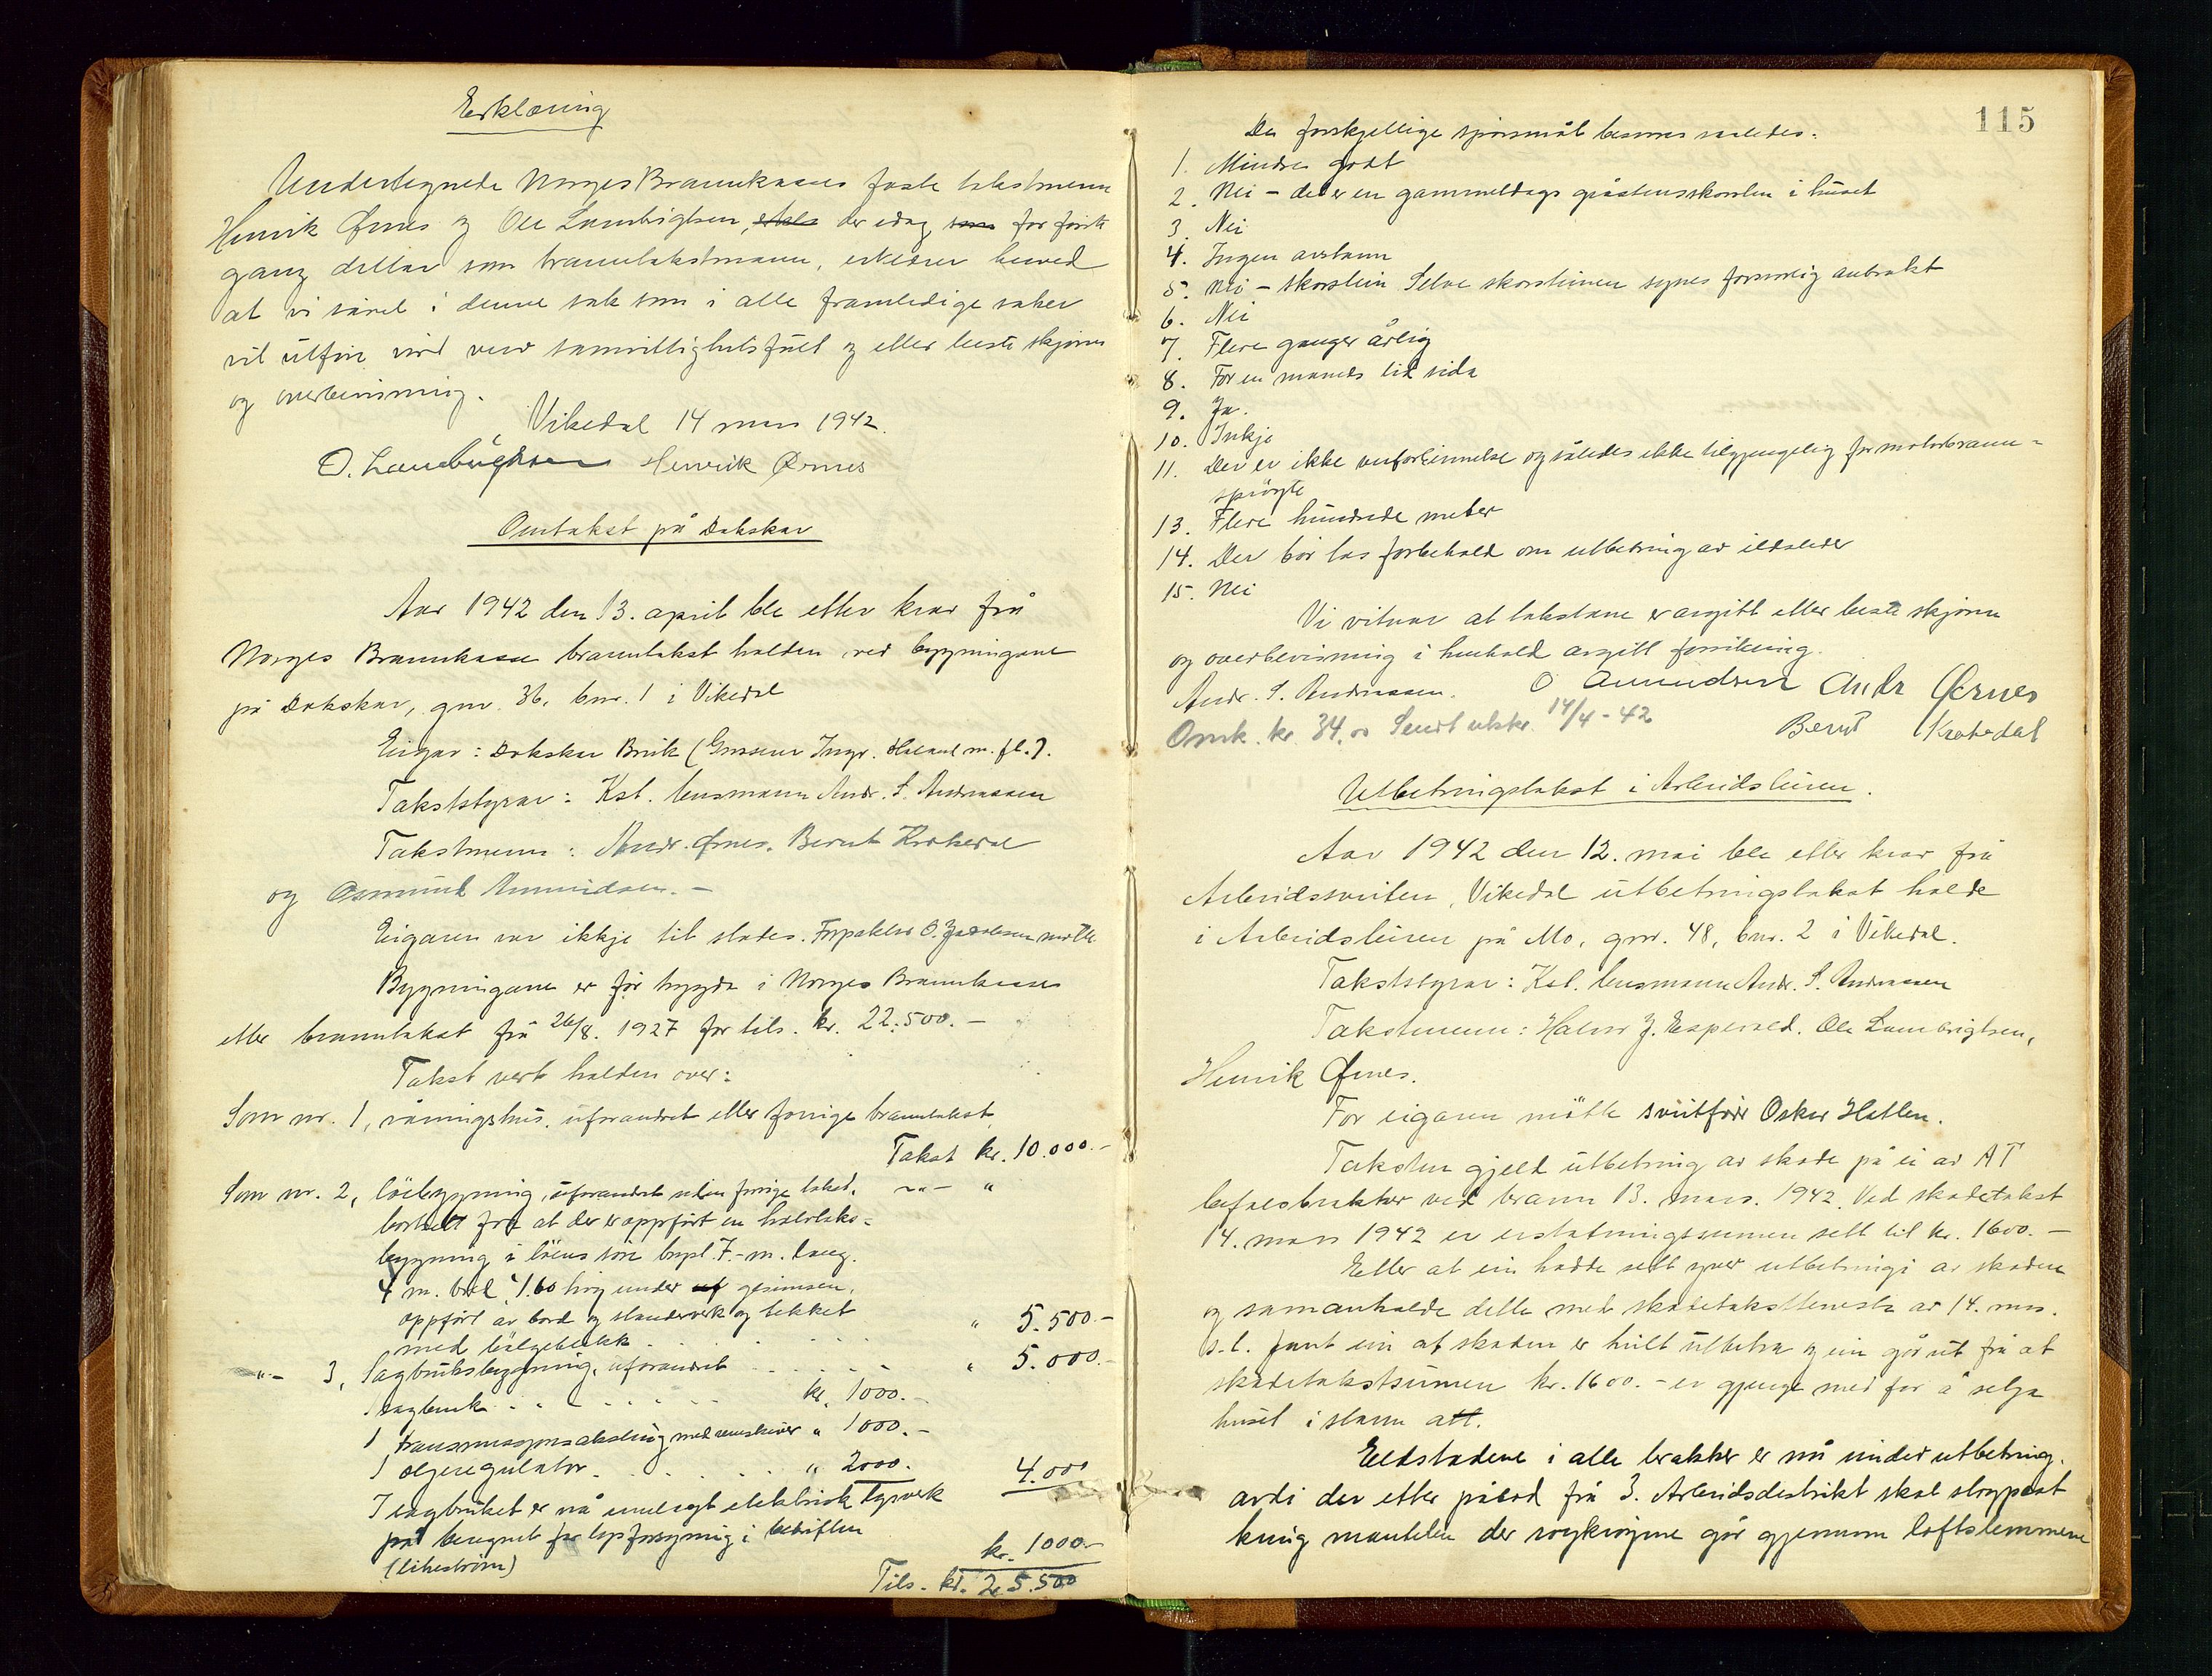 Erklæring
Undertegnede Norges Brannkasses faste takstmenn
Henrik Ørnes og Ole Lambrigtsen, der idag som for første
gang deltar som branntakstmann, erklærer herved
at vi såvel i denne sak som i alle framtidige saker
vil utføre vort verv samvittighetsfult og etter beste skjønn
og overbevisning.
Vikedal 14 mars 1942.
O. Lambrigtsen Henrik Ørnes
Omtakst på Dokskar
Aar 1942 den 13. april ble etter krav frå
Norges Brannkasse branntakst halden ved bygningane
på Dokskar, gnr. 36, bnr. 1 i Vikedal
Eigar: Dokskar Bruk (Grosserer Ingv. Haland m. fl.).
Takststyrar: Kst. lensmann Andr. S. Andreassen
Takstmenn: Andr. Ørnes, Berut Krakedal
og Osmund Amundsen. -
Eigaren var ikkje til stades. Forpakter O. Jacobsen møtte
Bygningane er før trygda i Norges Brannkasse
etter branntakst frå 26/8. 1927 for tils. kr. 22.500.-
Takst vert halden over:
Som nr. 1, våningshus, uforandret etter forrige branntakst,
Takst kr. 10.000.-
Som nr. 2, löebygning, uforandret siden forrige takst, -"- "
bortsett fra at der er oppført en halvtaks-
bygning i löens søre 7.- m. lang.
4 m. bred 4.60 høg under gesimsen,
oppført av bord og standerverk og tekket
med bølgeblekk . . . . " 5.500.-
-"- 3, Sagbruksbygning, uforandret . . . . . " 5.000.-
1 sagbenk . . . . . . kr. 1000.-
1 transmisjonsaksling med remskiver " 1000.-
1 oljeregulator . . . . . . " 2000.
4.000
I sagbruket er nå innlagt elektrisk lysverk
på beregnet for lysforsyning i bedriften
(likestrøm) kr. 1000.-
Tils. kr. 25.500
115
De forskjellige spørsmål besvares saaledes:
1. Mindre godt
2. Nei - det er en gammeldags gråstensskorsten i huset
3. Nei
4. Ingen avstann
5. Nei - skorstein Selve skorsteinen synes forsvarlig anbrakt
6. Nei
7. Flere ganger årlig
8. For en maneds tid sida
9. Ja.
10. Inkje
11. Der er ikke veiforbinnelse og således ikke tilgjengelig for motorbrann-
sprøyte
13. Flere hundrede meter
14. Der bør tas forbehold om utbetring av ildsteder
15. Nei
Vi vitnar at takstane er avgitt etter beste skjønn
og overbevisning i henhold avgitt forsikring.
Andr. S. Andreassen. O Amundsen Andr Ørnes
Omk. kr. 34.00 Sendt utskr. 14/4-42 Berut Krakedal
Utbetringstakst i Arbeidsleiren.
Aar 1942 den 12. mai ble etter krav frå
Arbeidssveiten, Vikedal utbetringstakst halde
i Arbeidsleiren på Mo, gnr. 48, bnr. 2 i Vikedal.
Takststyrar: Kst. lensmann Andr. S. Andreassen
Takstmenn: Halvor J. Espevold. Ole Lambrigtsen,
Henrik Ørnes.
For eigaren møtte sveitfører Oskar Hatlen.
Taksten gjeld utbetring av skade på ei av AT
befalsbrakker ved brann 13. mars. 1942. Ved skadetakst
14. mars 1942 er erstatningssumen sett til kr. 1600.-
Etter at ein hadde sett yver utbetringi av skaden
og samanhalde dette med skadetakstteneste av 14. mars.
s.l. fant ein at skaden er heilt utbetra og ein går ut frå at
skadetakstsumen kr. 1600.- er gjenge med for å setja
huset i stann att.
Eldstadene i alle brakker er nå under utbetring,
avdi der etter påbod frå 3. Arbeidsdistrikt skal støypast
kring mantelen der røykrøyrene går gjennom loftslemmene